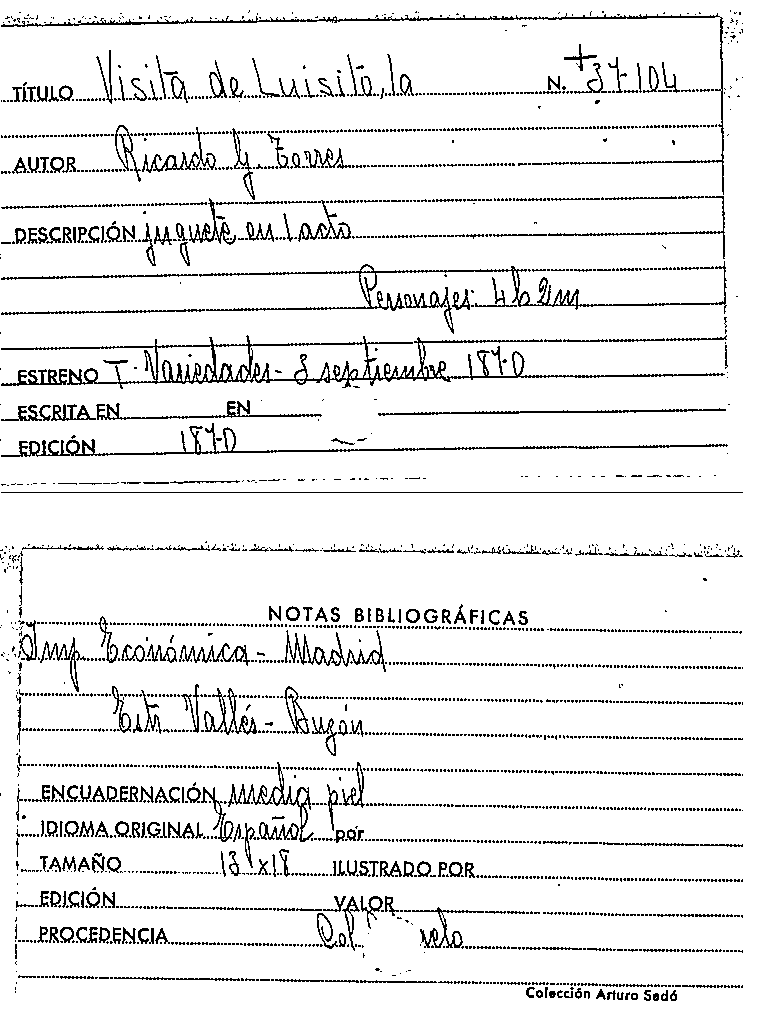 TÍTULO Visita de Luisito, la N. + 37-104
AUTOR Ricardo G. Torres
DESCRIPCIÓN juguete en 1 acto
Personajes: 4h 2m
ESTRENO T. Variedades - 3 septiembre 1870
ESCRITA EN EN
EDICIÓN 1870
NOTAS BIBLIOGRÁFICAS
Imp Económica - Madrid
Estr Vallés - Buzón
ENCUADERNACIÓN media piel
IDIOMA ORIGINAL Español por
TAMAÑO 13 x 18 ILUSTRADO POR
EDICIÓN VALOR
PROCEDENCIA Col
Colección Arturo Sedó